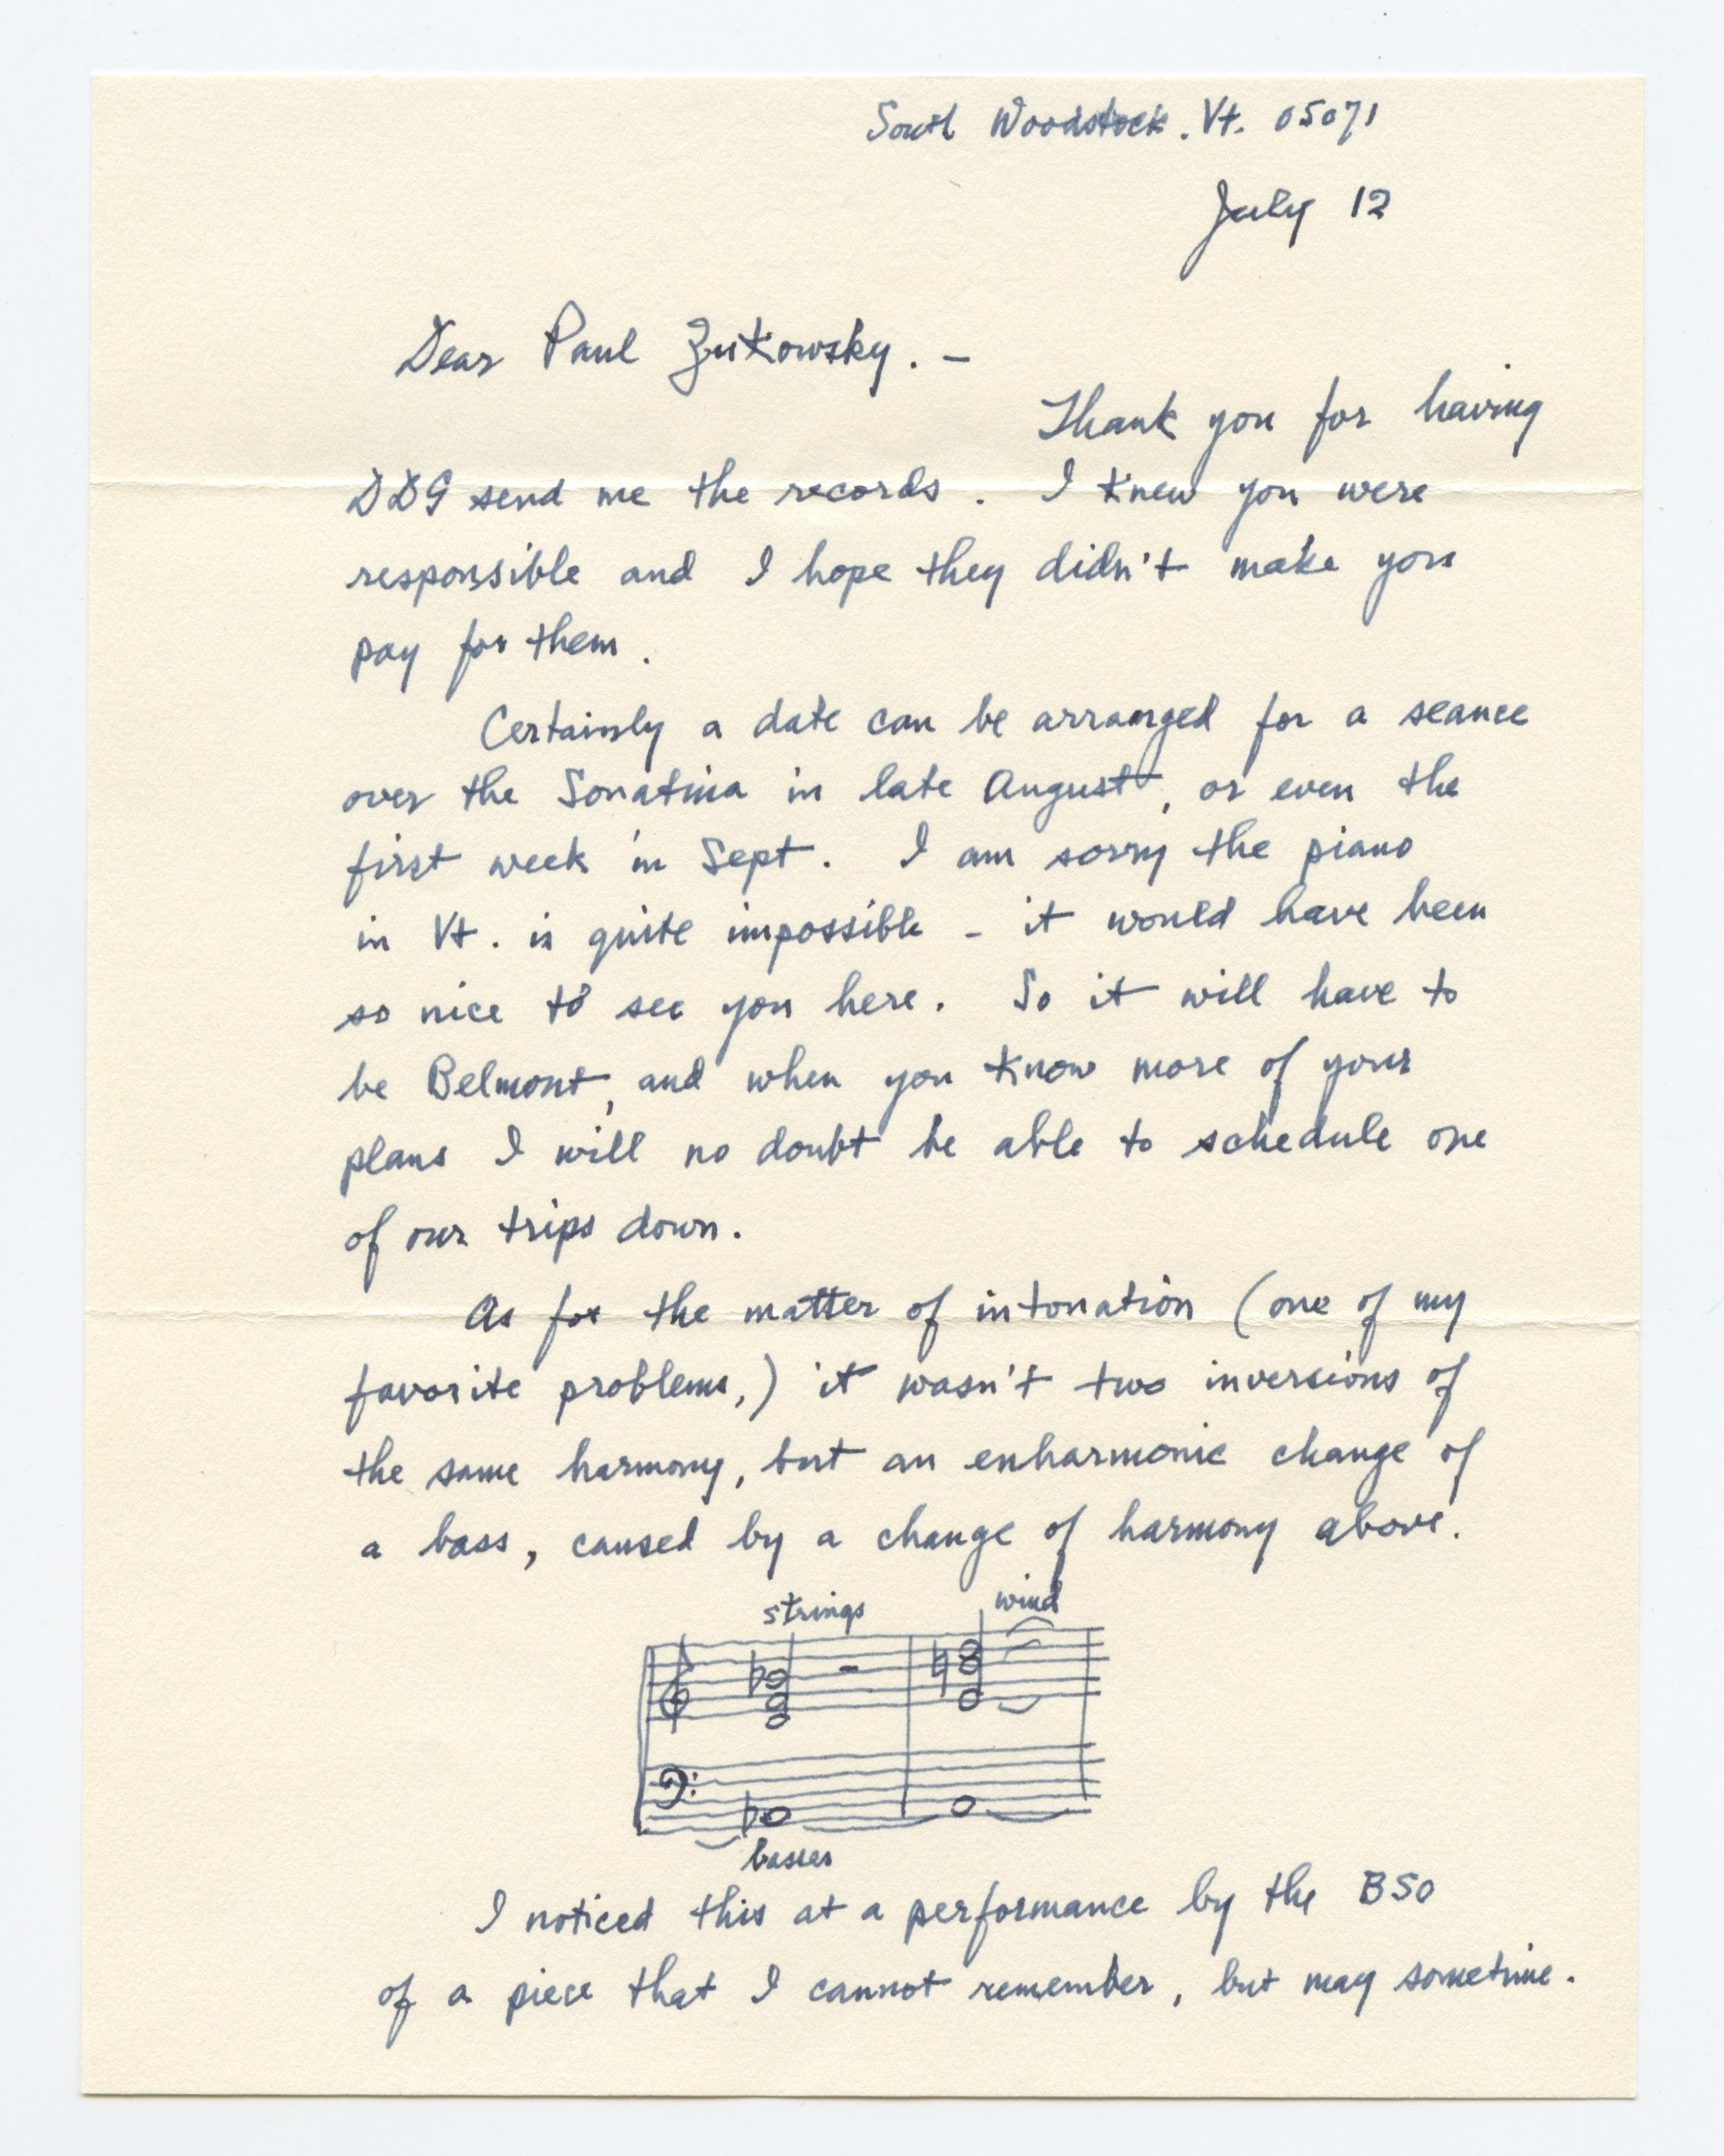 South Woodstock. Vt. 05071
July 12
Dear Paul Zukowsky. –
Thank you for having
DDG send me the records. I knew you were
responsible and I hope they didn't make you
pay for them.
Certainly a date can be arranged for a seance
over the Sonatina in late August, or even the
first week in Sept. I am sorry the piano
in Vt. is quite impossible – it would have been
so nice to see you here. So it will have to
be Belmont, and when you know more of your
plans I will no doubt be able to schedule one
of our trips down.
As for the matter of intonation (one of my
favorite problems,) it wasn't two inversions of
the same harmony, but an enharmonic change of
a bass, caused by a change of harmony above.
strings wind
basses
I noticed this at a performance by the BSO
of a piece that I cannot remember, but may sometime.